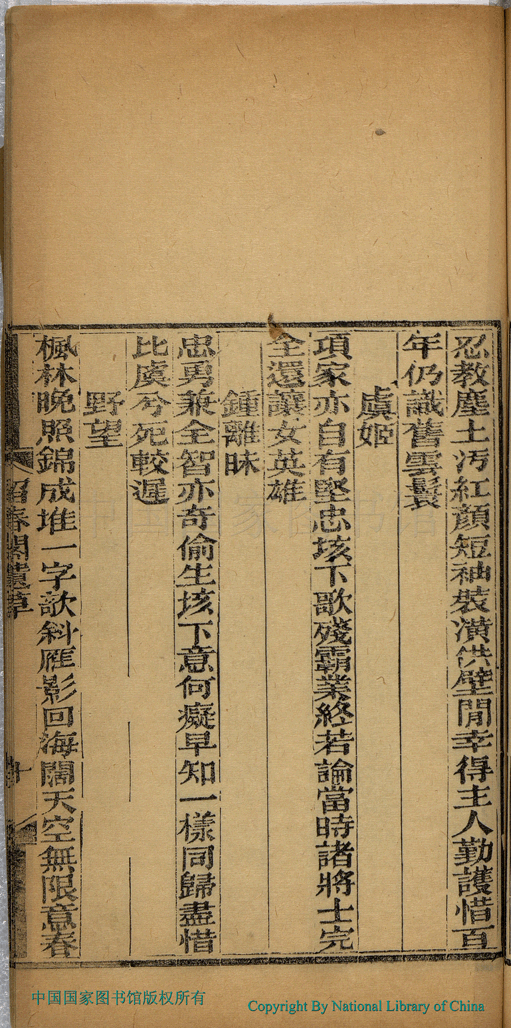 忍教塵土汚紅顔短袖裝潢供壁間幸得主人勤護惜百
年仍識舊雲鬟
虞姬
項家亦自有堅忠垓下歌殘霸業終若論當時諸將士完
全還讓女英雄
鍾離昧
忠勇兼全智亦奇偷生垓下意何癡早知一樣同歸盡惜
比虞兮死較遲
野望
楓林晚照錦成堆一字欹斜雁影回海闊天空無限意春
春閣遺草
中国国家图书馆版权所有
Copyright By National Library of China